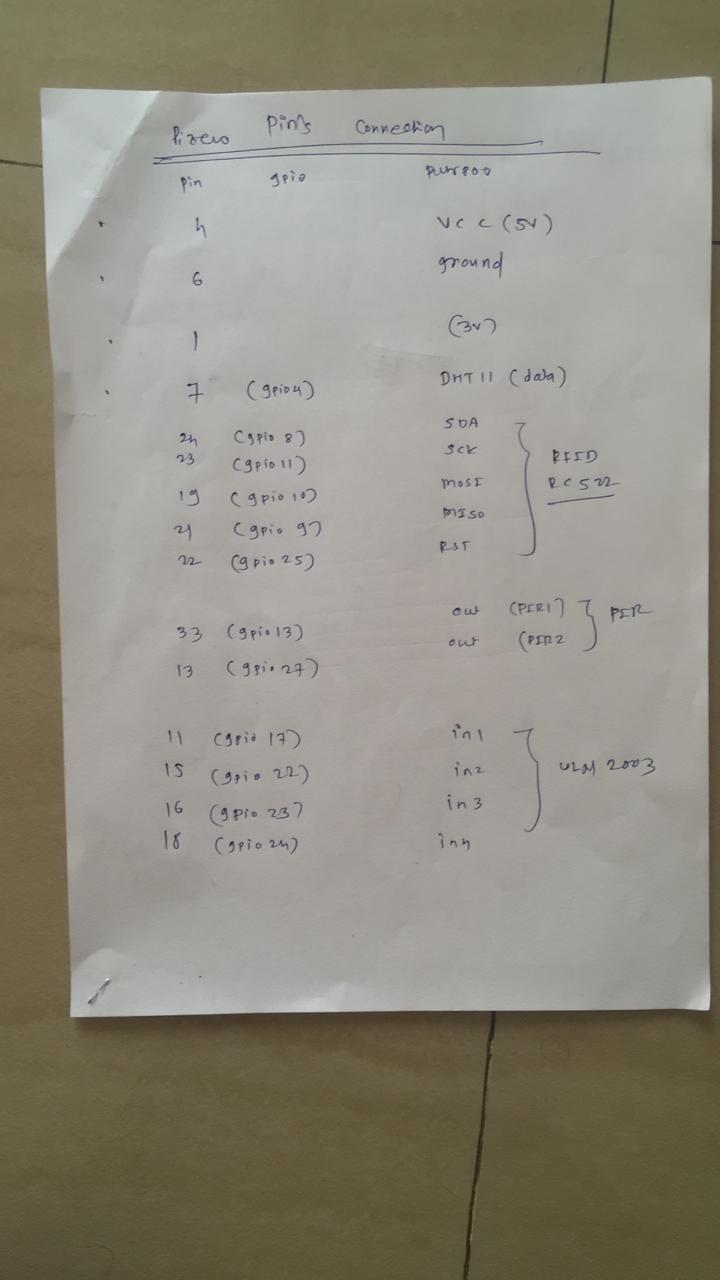 Pizero Pin's Connection
pin gpio purpose
4 VCC (5V)
6 ground
1 (3v)
7 (gpio4) DHT11 (data)
24 (gpio 8) SDA
23 (gpio 11) SCK
19 (gpio 10) MOSI
21 (gpio 9) MISO
22 (gpio 25) RST
RFID
RC522
33 (gpio 13) out (PIR1)
13 (gpio 27) out (PIR2
PIR
11 (gpio 17) in1
15 (gpio 22) in2
16 (gpio 23) in3
18 (gpio 24) in4
ULN 2003